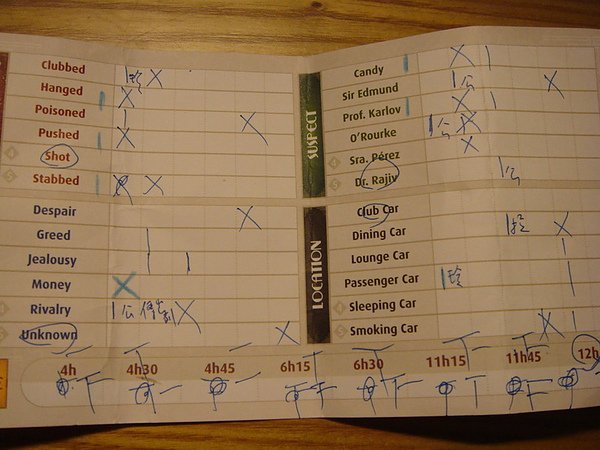 Clubbed X
Hanged X
Poisoned X
Pushed X
Shot
Stabbed X
Despair X
Greed
Jealousy
Money X
Rivalry 1公 X
Unknown X
SUSPECT
Candy X
Sir Edmund 1公 X
Prof. Karlov X
O'Rourke 1公 X
Sra. Pérez X
Dr. Rajiv 1公
LOCATION
Club Car
Dining Car X
Lounge Car
Passenger Car
Sleeping Car
Smoking Car X
4h 4h30 4h45 6h15 6h30 11h15 11h45 12h